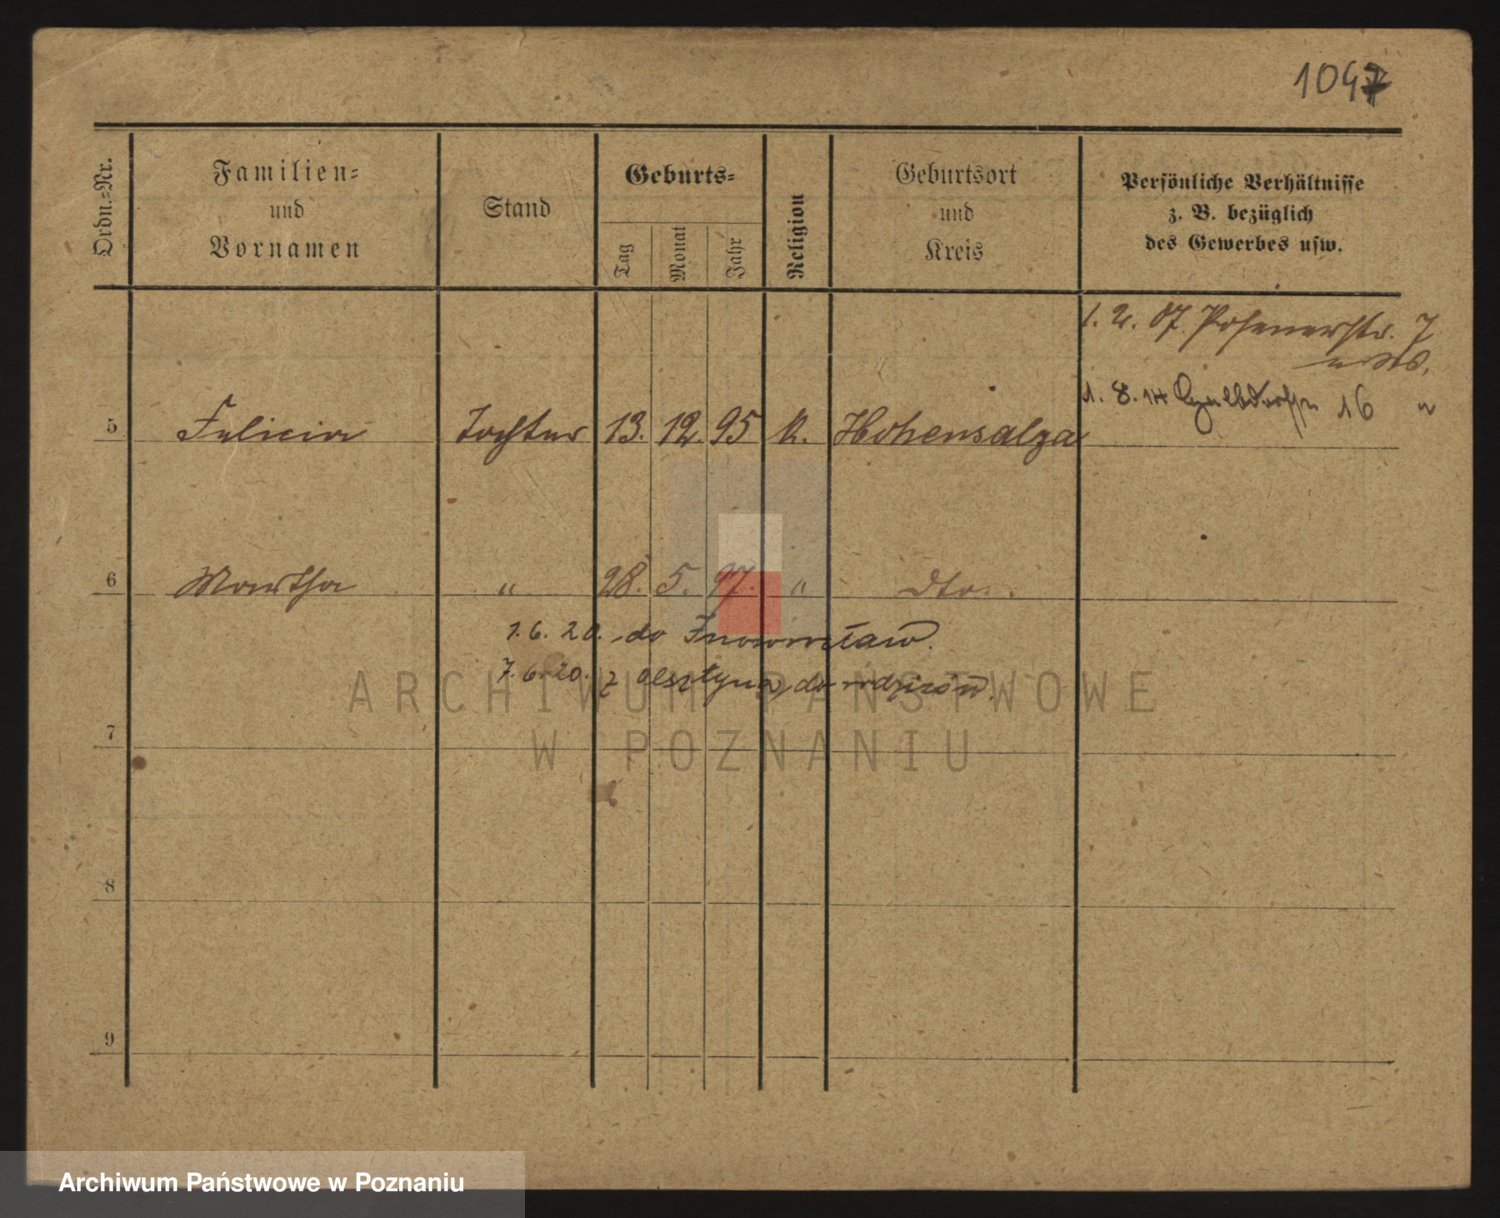 1047
Ordn.-Nr.
Familien-
und
Vornamen
Stand
Geburts-
Tag
Monat
Jahr
Religion
Geburtsort
und
Kreis
Persönliche Verhältnisse
z. B. bezüglich
des Gewerbes usw.
1. 2. 07. Posenerstr. 7
1. 8. 14 16
5 Felicia Tochter 13. 12. 95 k. Hohensalza
6 Martha " 28. 5. 97. " dto.
1. 6. 20. do Inowrocław.
7. 6. 20. z Olsztyna, do rodziców.
7
8
9
ARCHIWUM PAŃSTWOWE
W POZNANIU
Archiwum Państwowe w Poznaniu